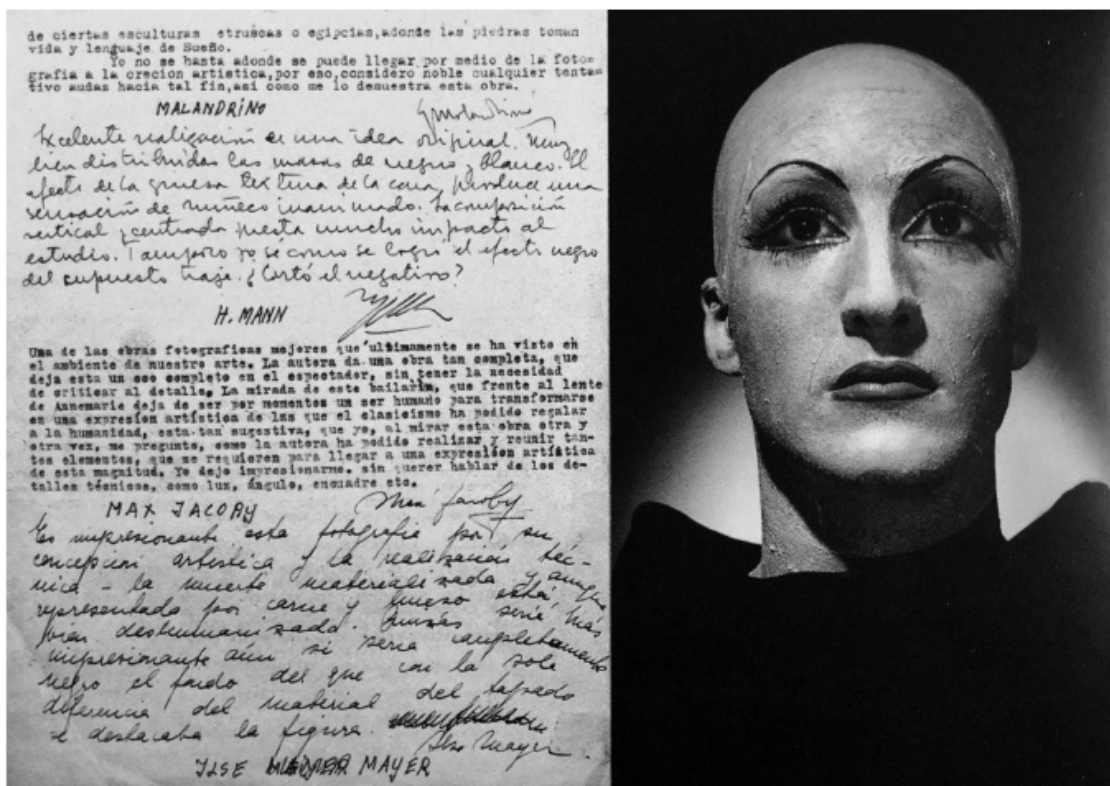 de ciertas esculturas etruscas o egipcias,adonde las piedras toman
vida y lenguaje de Sueño.
Yo no se hasta adonde se puede llegar por medio de la foto=
grafia a la crecion artistica,por eso,considero noble cualquier tenta=
tivo audaz hacia tal fin,asi como me lo demuestra esta obra.
MALANDRINO
Excelente realización de una idea original. Muy
bien distribuidas las masas de negro y blanco. El
efecto de la gruesa textura de la cara, produce una
sensación de muñeco inanimado. La composición
vertical y centrada presta mucho impacto al
estudio. Tampoco yo sé como se logró el efecto negro
del supuesto traje. ¿Cortó el negativo?
H. MANN
Una de las obras fotograficas mejores que ultimamente se ha visto en
el ambiente de nuestro arte. La autora da una obra tan completa, que
deja esta un eco completo en el espectador, sin tener la necesidad
de criticar al detalle. La mirada de este bailarin, que frente al lente
de Annemarie deja de ser por momentos un ser humano para transformarse
en una expresión artística de las que el clasicismo ha podido regalar
a la humanidad, esta tan sugestiva, que yo, al mirar esta obra otra y
otra vez, me pregunto, como la autora ha podido realizar y reunir tan-
tos elementos, que se requieren para llegar a una expresión artística
de esta magnitud. Yo dejo impresionarme. sin querer hablar de los de-
talles técnicos, como luz, ángulo, encuadre etc.
MAX JACOBY Max Jacoby
Es impresionante esta fotografia por su
concepción artística y la realización téc-
nica - la muerte materializada y aunque
representada por carne y hueso está más
bien deshumanizada. Quizás sería
impresionante aún si seria completamente
negro el fondo del que con la sola
diferencia del material del tapado
se destacaba la figura.
Ilse Mayer.
ILSE MAYER